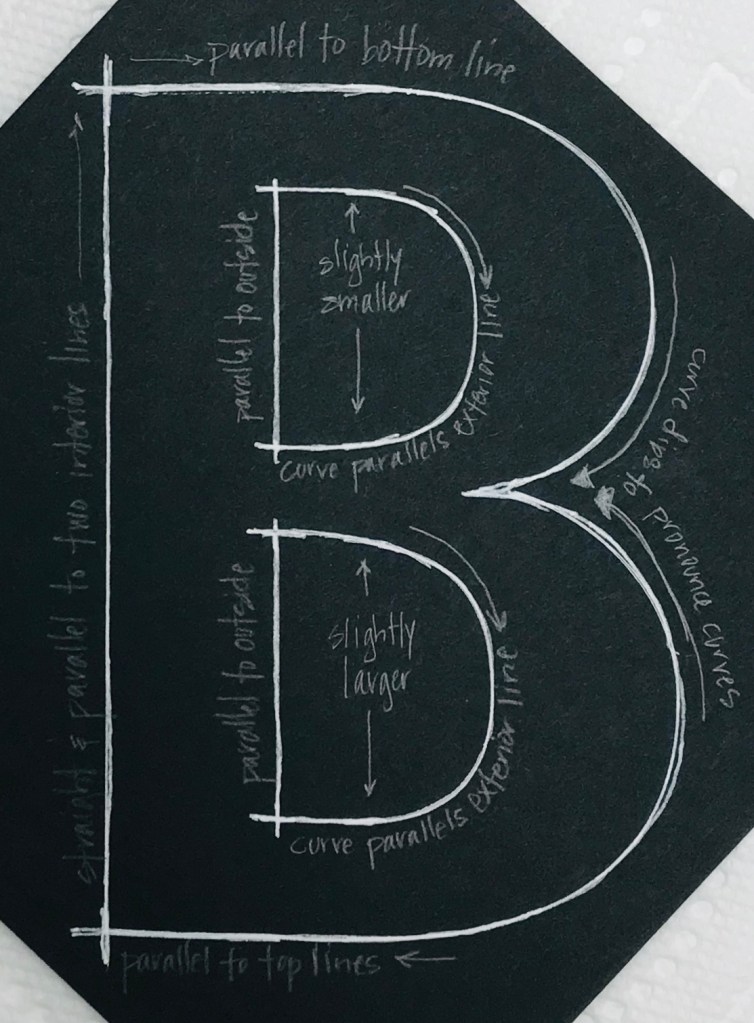 parallel to bottom line
straight & parallel to two interior lines
parallel to outside
slightly
smaller
curve parallels exterior line
curve dips to
pronounce curves
parallel to outside
slightly
larger
curve parallels exterior line
parallel to top lines